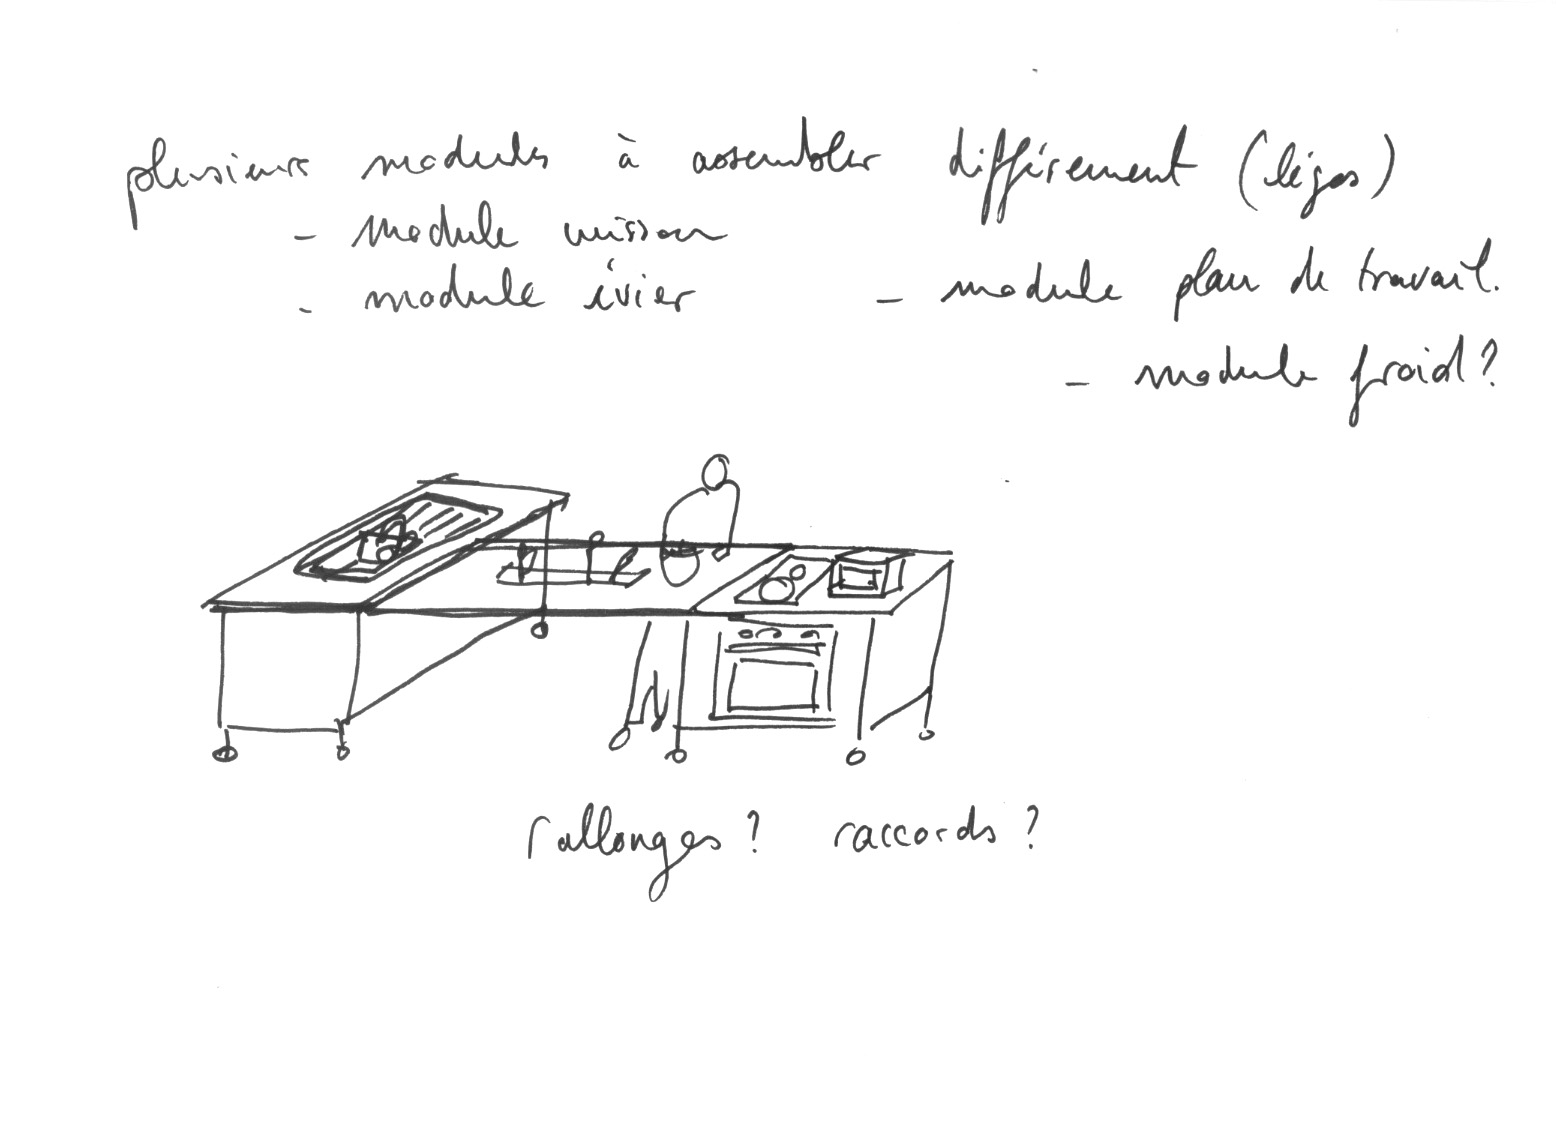 plusieurs modules à assembler différement (légos)
- module cuisson
- module évier
- module plan de travail.
- module froid ?
rallonges ? raccords ?